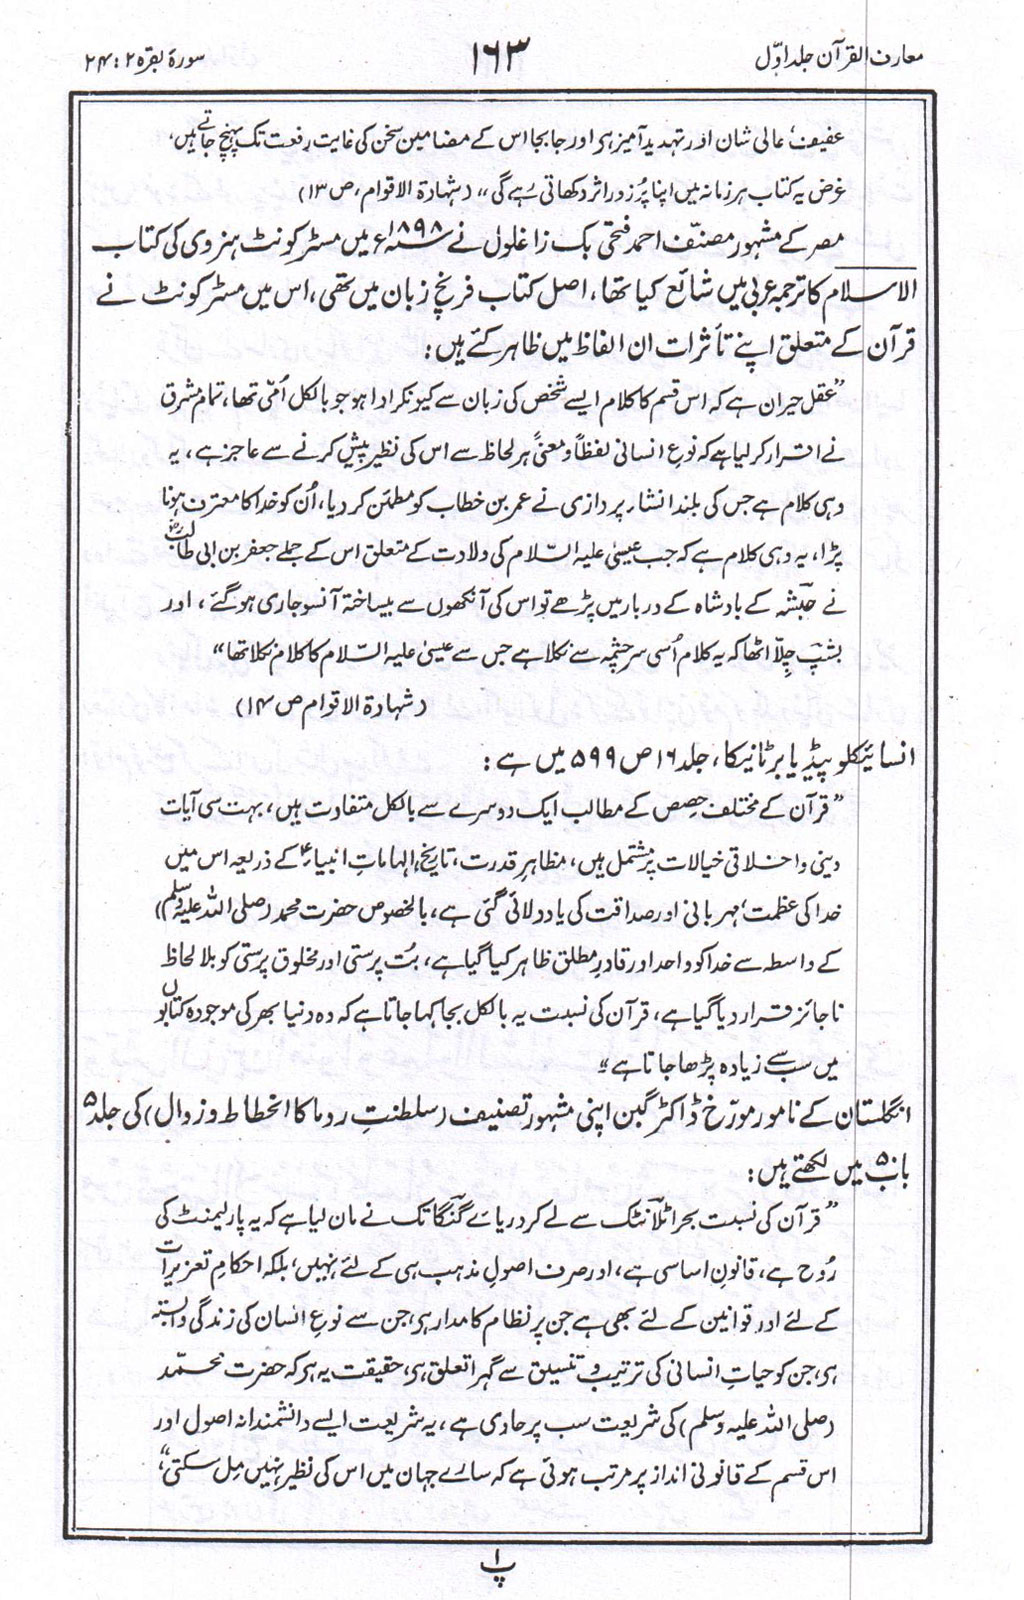 معارف القرآن جلد اوّل
۱۶۳
سورۂ بقرہ ۲ : ۲۴
عفیف، عالی شان اور تہدید آمیز ہی اور جا بجا اس کے مضامین سخن کی غایت رفعت تک پہنچ جاتے ہیں،
غرض یہ کتاب ہر زمانہ میں اپنا پُر زور اثر دکھاتی رہے گی،، (شہادۃ الاقوام، ص ۱۳)
مصر کے مشہور مصنّف احمد فتحی بک زاغلول نے ۱۸۹۸ء میں مسٹر کونٹ ہنروی کی کتاب
الاسلام کا ترجمہ عربی میں شائع کیا تھا، اصل کتاب فرنچ زبان میں تھی، اس میں مسٹر کونٹ نے
قرآن کے متعلق اپنے تأثرات ان الفاظ میں ظاہر کئے ہیں:
”عقل حیران ہے کہ اس قسم کا کلام ایسے شخص کی زبان سے کیونکر ادا ہو جو بالکل اُمّی تھا، تمام مشرق
نے اقرار کر لیا ہے کہ نوعِ انسانی لفظاً و معنیً ہر لحاظ سے اس کی نظیر پیش کرنے سے عاجز ہے، یہ
وہی کلام ہے جس کی بلند انشار پردازی نے عمر بن خطاب کو مطمئن کر دیا، اُن کو خدا کا معترف ہونا
پڑا، یہ وہی کلام ہے کہ جب عیسیٰ علیہ السّلام کی ولادت کے متعلق اس کے جملے جعفر بن ابی طالبؓ
نے حبشہ کے بادشاہ کے دربار میں پڑھے تو اس کی آنکھوں سے بیساختہ آنسو جاری ہو گئے، اور
بشپ چِلّا اٹھا کہ یہ کلام اُسی سرچشمہ سے نکلا ہے جس سے عیسیٰ علیہ السّلام کا کلام نکلا تھا“
(شہادۃ الاقوام ص ۱۴)
انسائیکلو پیڈیا برٹانیکا، جلد ۱۶ ص ۵۹۹ میں ہے:
”قرآن کے مختلف حِصص کے مطالب ایک دوسرے سے بالکل متفاوت ہیں، بہت سی آیات
دینی و اخلاقی خیالات پر مشتمل ہیں، مظاہر قدرت، تاریخ، الہاماتِ انبیاءؑ کے ذریعہ اس میں
خدا کی عظمت، مہربانی اور صداقت کی یاد دلائی گئی ہے، بالخصوص حضرت محمد (صلی اللہ علیہ وسلم)
کے واسطہ سے خدا کو واحد اور قادرِ مطلق ظاہر کیا گیا ہے، بُت پرستی اور مخلوق پرستی کو بلا لحاظ
ناجائز قرار دیا گیا ہے، قرآن کی نسبت یہ بالکل بجا کہا جاتا ہے کہ وہ دنیا بھر کی موجودہ کتابوں
میں سب سے زیادہ پڑھا جاتا ہے“
انگلستان کے نامور مورّخ ڈاکٹر گبن اپنی مشہور تصنیف (سلطنتِ روما کا انحطاط و زوال) کی جلد ۵
باب ۵۰ میں لکھتے ہیں:
”قرآن کی نسبت بحر اٹلانٹک سے لے کر دریائے گنگا تک نے مان لیا ہے کہ یہ پارلیمنٹ کی
رُوح ہے، قانونِ اساسی ہے، اور صرف اصولِ مذہب ہی کے لئے نہیں، بلکہ احکامِ تعزیرات
کے لئے اور قوانین کے لئے بھی ہے جن پر نظام کا مدار ہی، جن سے نوعِ انسان کی زندگی وابستہ
ہی، جن کو حیاتِ انسانی کی ترتیب و تنسیق سے گہرا تعلق ہی، حقیقت یہ ہی کہ حضرت محمّد
(صلی اللہ علیہ وسلم) کی شریعت سب پر حاوی ہے، یہ شریعت ایسے دانشمندانہ اصول اور
اس قسم کے قانونی انداز پر مرتب ہوئی ہے کہ سارے جہان میں اس کی نظیر نہیں مِل سکتی“
پ۱